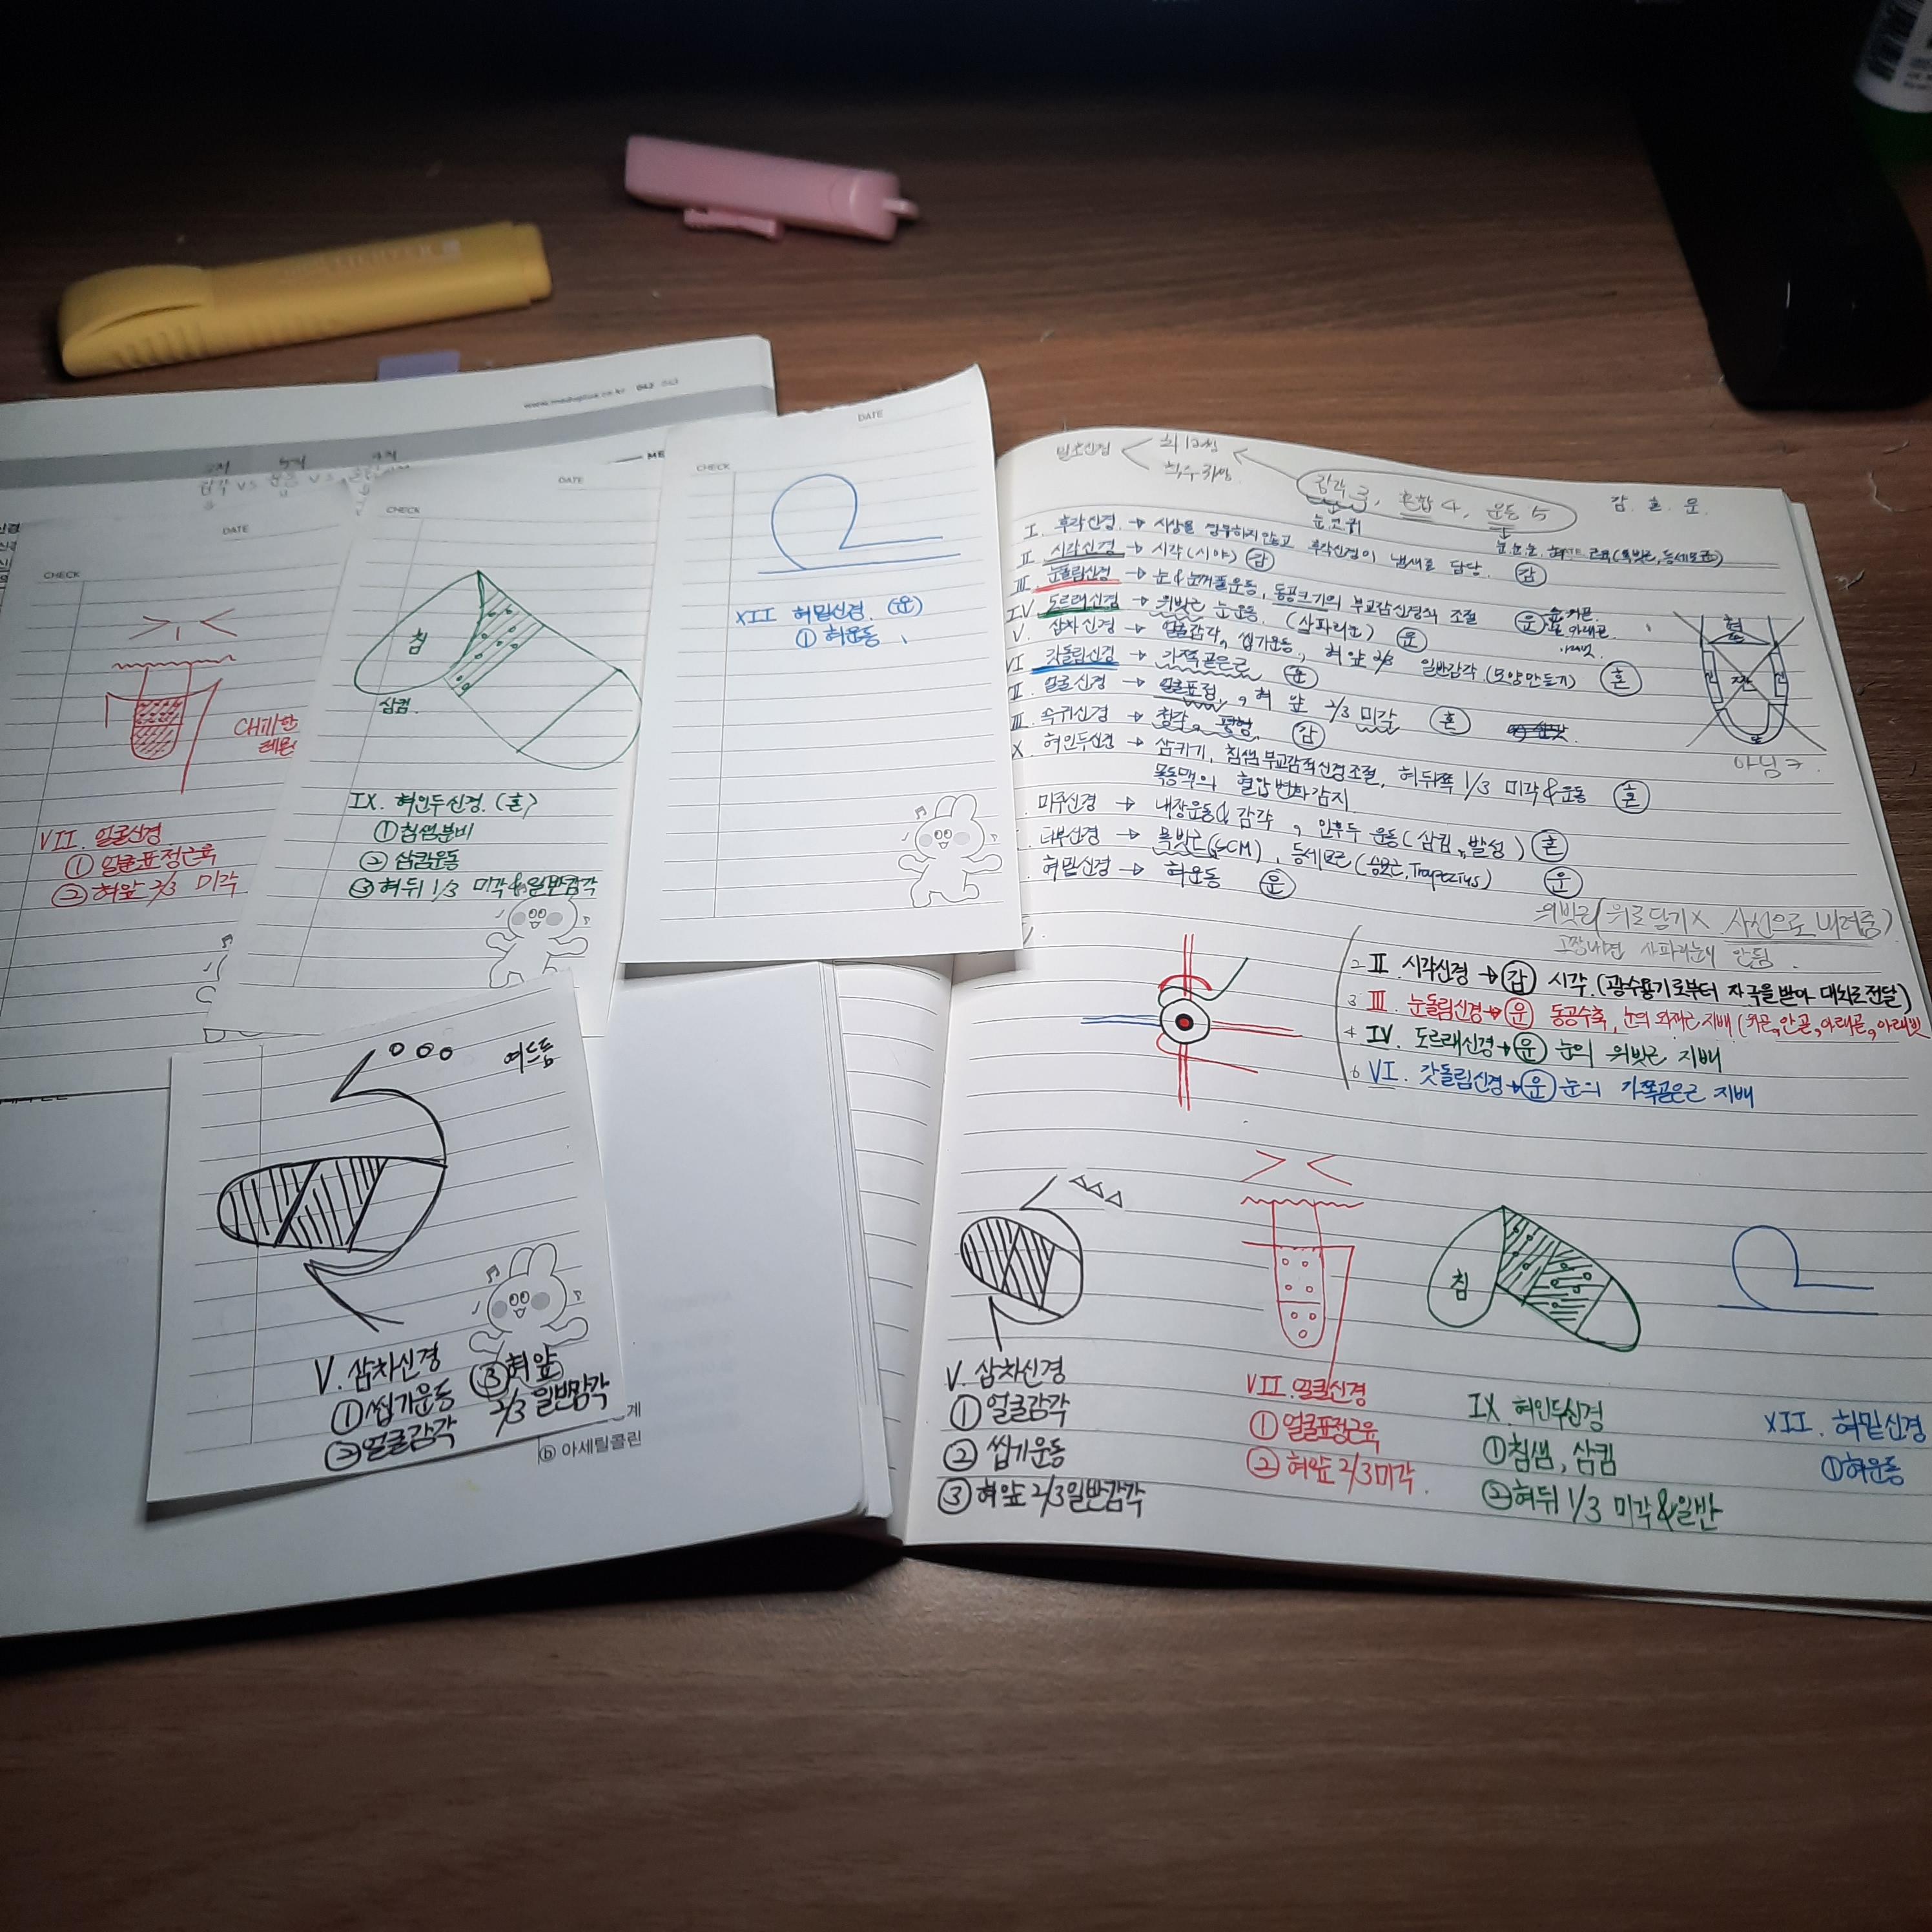 www.medhoplus.co.kr 043
DATE
CHECK
CHill한
레몬
VII. 얼굴신경
① 얼굴표정근육
② 혀앞 2/3 미각
DATE
CHECK
침
삼킴
IX. 혀인두신경. (혼)
① 침샘분비
② 삼킴운동
③ 혀뒤 1/3 미각&일반감각
DATE
CHECK
XII 혀밑신경. (운)
① 혀운동
여드름
V. 삼차신경
① 씹기운동
② 얼굴감각
③ 혀앞
2/3 일반감각
ⓑ 아세틸콜린
말초신경
뇌 12쌍
척수 31쌍
감각 3, 혼합 4, 운동 5
감. 혼. 운.
눈.코.귀
I. 후각신경 → 시상을 경유하지 않고 후각신경이 냄새로 담당. 감
II. 시각신경 → 시각(시야) 감
III. 눈돌림신경 → 눈&눈꺼풀운동, 동공크기의 부교감신경의 조절 운
IV. 도르래신경 → 위빗근 눈운동. (사파리눈) 운
V. 삼차신경 → 얼굴감각, 씹기운동, 혀 앞 2/3 일반감각 (모양만들기) 혼
VI 갓돌림신경 → 가쪽곧은근 운
II. 얼굴신경 → 얼굴표정, 혀 앞 2/3 미각 혼
III. 속귀신경 → 청각, 평형. 감
X. 혀인두신경 → 삼키기, 침샘부교감적신경조절, 혀뒤쪽 1/3 미각&운동 혼
목동맥의 혈압변화감지
미주신경 → 내장운동& 감각, 인후두 운동(삼킴, 발성) 혼
더부신경 → 목빗근(SCM), 등세모근(승모근, Trapezius) 운
혀밑신경 → 혀운동 운
아님ㅋ
위빗근(위로당기기X 사선으로 내려줌)
고장나면 사파리눈이 안됨.
2 II. 시각신경 → 감 시각. (광수용기로부터 자극을 받아 대뇌로전달)
3 III. 눈돌림신경 → 운 동공수축, 눈의 외재근 지배 (위곧, 안곧, 아래곧, 아래빗
4 IV. 도르래신경 → 운 눈의 위빗근 지배
6 VI. 갓돌림신경 → 운 눈의 가쪽곧은근 지배
침
V. 삼차신경
① 얼굴감각
② 씹기운동
③ 혀앞 2/3일반감각
VII. 얼굴신경
① 얼굴표정근육
② 혀앞 2/3미각.
IX. 혀인두신경
① 침샘, 삼킴
② 혀뒤 1/3 미각&일반
XII. 혀밑신경
① 혀운동